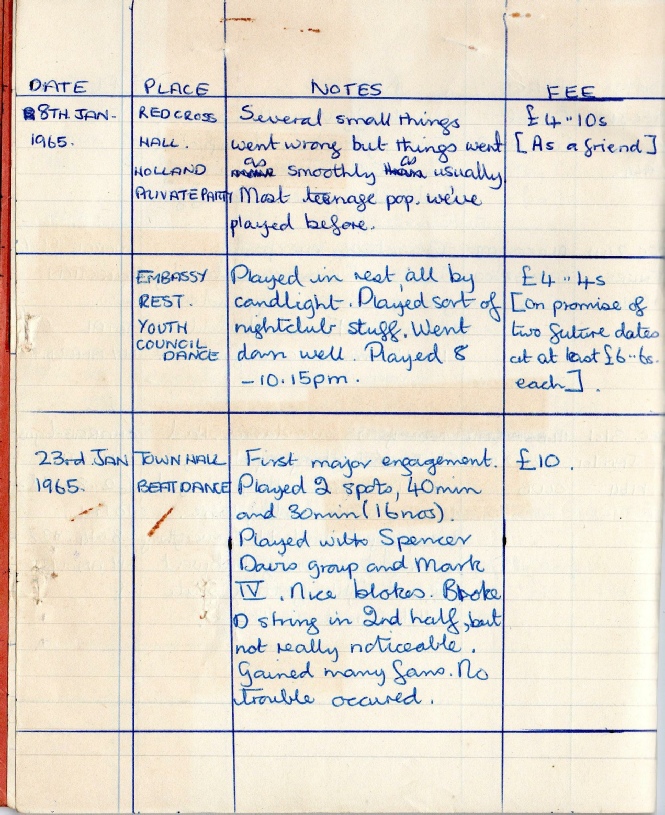 DATE PLACE NOTES FEE
8TH JAN-
1965.
RED CROSS
HALL.
HOLLAND
PRIVATE PARTY
Several small things
went wrong but things went
as smoothly as usually.
Most teenage pop. we've
played before.
£4-10s
[As a friend]
EMBASSY
REST.
YOUTH
COUNCIL
DANCE
Played in rest, all by
candlight. Played sort of
nightclub stuff. Went
down well. Played 8
-10.15pm.
£4-4s
[On promise of
two future dates
at at least £6-6s.
each].
23rd JAN
1965.
TOWN HALL
BEAT DANCE
First major engagement.
Played 2 spots, 40min
and 30min (16nos).
Played with Spencer
Davis group and Mark
IV. Nice blokes. Broke
D string in 2nd half, but
not really noticeable.
Gained many fans. No
trouble occured.
£10.